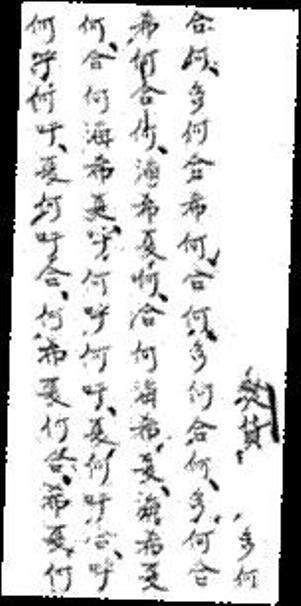 多何
合何、多何合希何、合何、多何合何、多、何合
希何合何、海希夏何、合何海希、夏、海希夏
何、合何海希夏、呼何呼何呼、夏何呼合、呼
何呼何呼、夏何呼合、何希夏何合、希夏、何